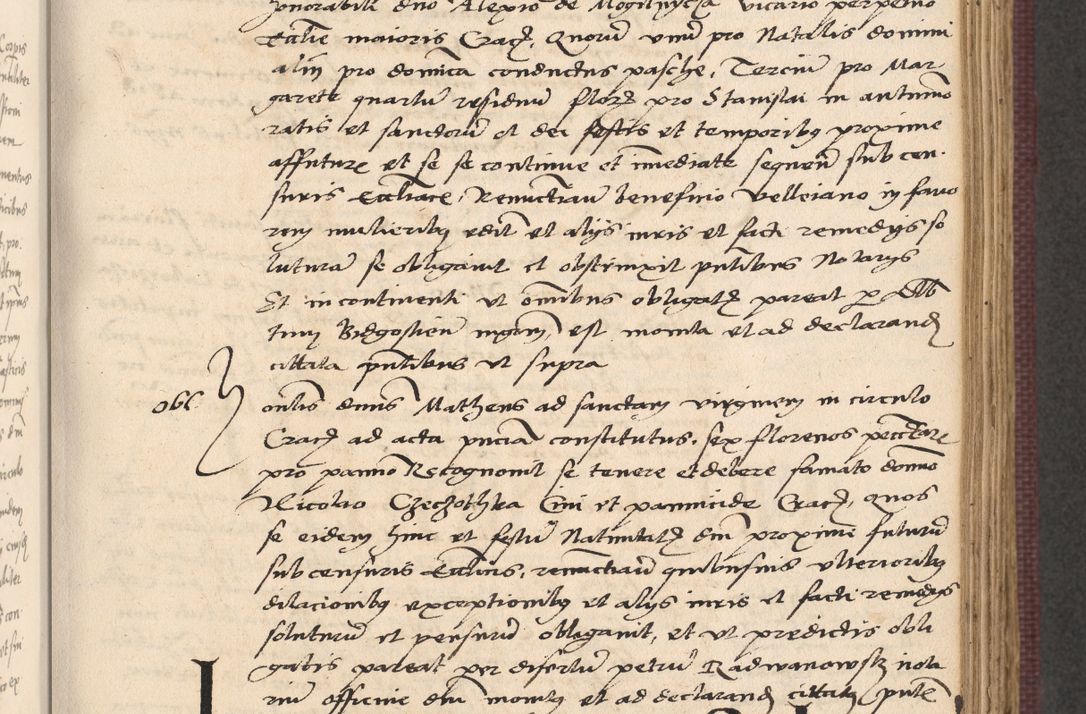 honorabili dno Alexio de Mogilnycza vicario perpetuo
Ecclie maioris Cracz, Quoru unu pro Natalis domini
aliu pro dominica conductus pasche, Terciu pro Mar
garete quartu residuu flor pro Stanislai in autumno
ratis et sanctoru et dei festis et temporibus proxime
affuture et se se continue et imediate sequen sub cen
suris Eccliace, Renuncciau beneficio velleiano in favo
rem mulieribus edit et alijs iuris et facti remedijs so
lutura se obligauit et obstrinxit pntibus Notarys
Et incontinenti ut omibus obligat pareat per
tinu Bidgostien est monita et ad declarand
cittata pntibus ut supra
obl. onlis dnus Matheus ad sanctam virginem in circulo
Cracz ad acta pncia constitutus, sex florenos
pro panno Recognouit se tenere et debere famato domno
Nicolao Czeczothka Ciui et pannicide Cracz, quos
se eidem hinc et festu Natiuitat dni proxime futuru
sub censuris Ecclicis, renuncciau quibusuis ulterioribus
dilacionibus exceptionibus et alijs iuris et facti remedijs
soluturu et pensuru obligauit, et ut predictis obli
gatis pareat per discretu petru Radwanowsky nota
riu officii dni monitus et ad declarand cittatus pnte